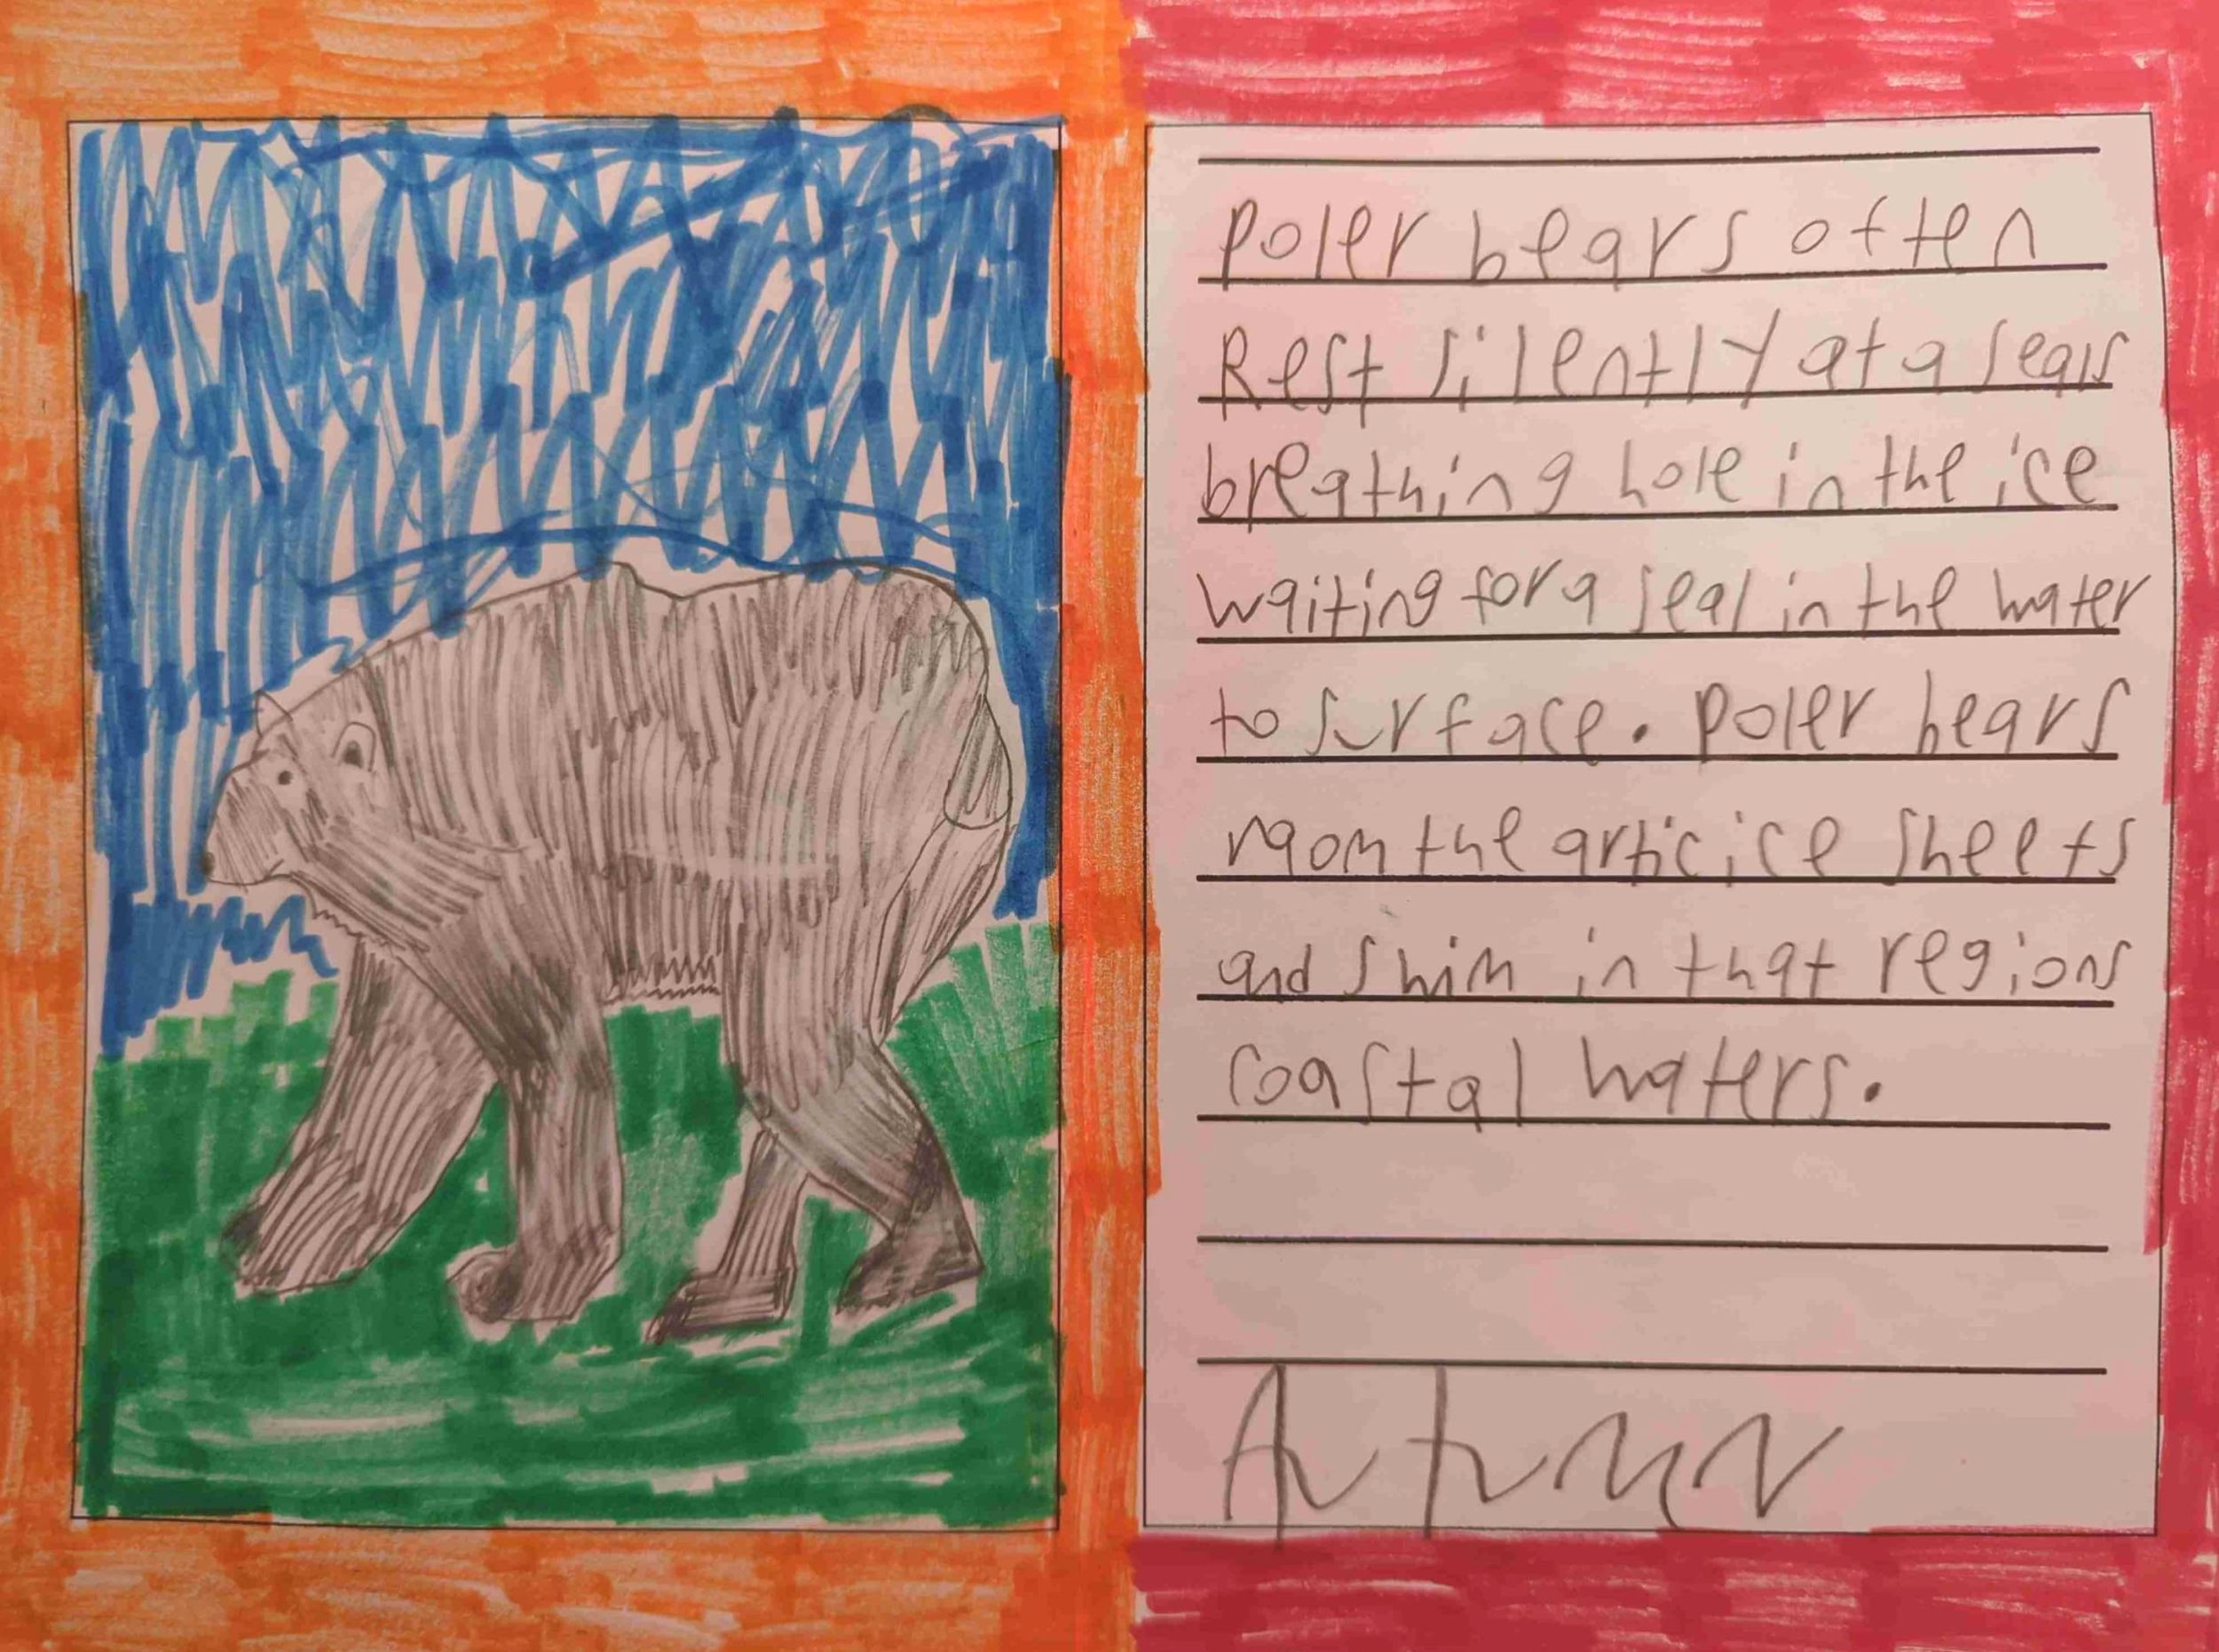 poler bears often
Rest silently at a seals
breathing hole in the ice
waiting for a seal in the water
to surface. poler bears
raom the artic ice sheets
and swim in that regions
coastal waters.
Autumn